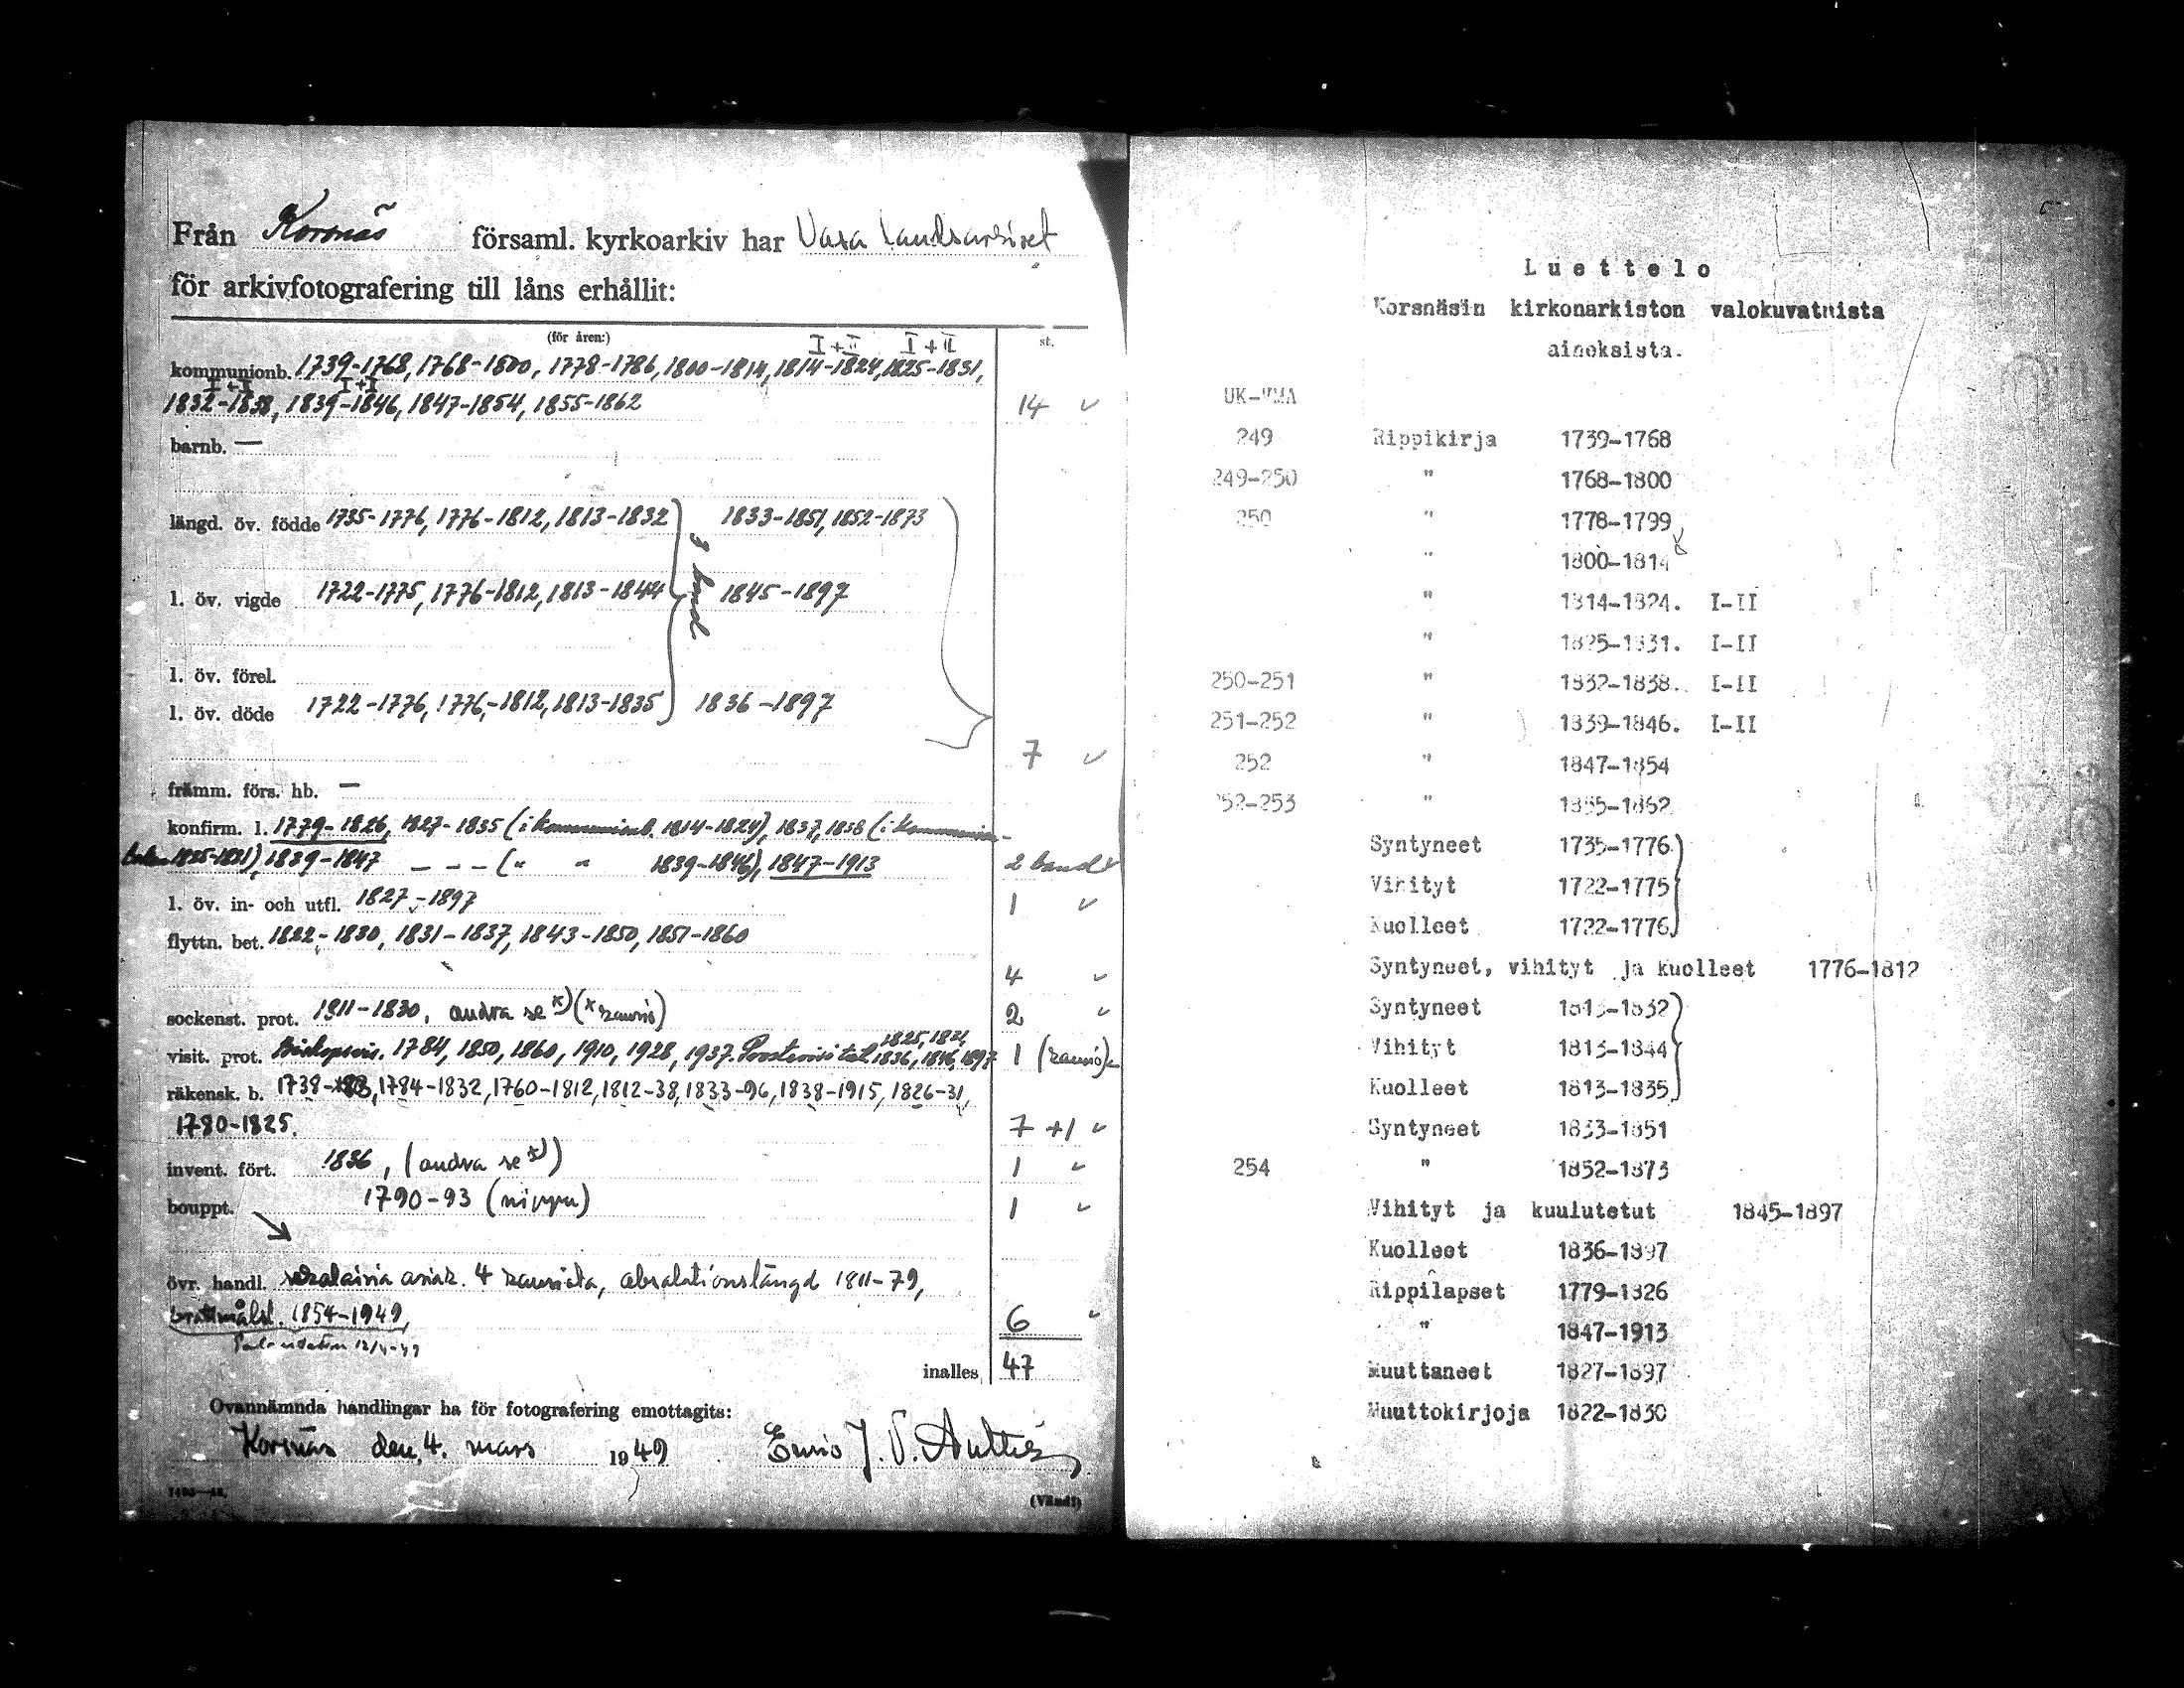 Från Korsnäs församl. kyrkoarkiv har Vasa landsarkivet
för arkivfotografering till låns erhållit:
(för åren:) st.
I+II I+II
kommunionb. 1739-1768, 1768-1800, 1778-1786, 1800-1814, 1814-1824, 1825-1831,
I+I I+I
1832-1838, 1839-1846, 1847-1854, 1855-1862 14 ✓
barnb. —
längd. öv. födde 1735-1776, 1776-1812, 1813-1832 1833-1851, 1852-1873
3 band
l. öv. vigde 1722-1775, 1776-1812, 1813-1844 1845-1897
l. öv. förel.
l. öv. döde 1722-1776, 1776-1812, 1813-1835 1836-1897
7 ✓
främm. förs. hb. —
konfirm. l. 1779-1826, 1827-1835 (i kommunionb. 1814-1824), 1837, 1838 (i kommunion-
boken 1825-1831), 1839-1847 — — — (" " 1839-1846), 1847-1913 2 band ✓
l. öv. in- och utfl. 1827-1897 1 ✓
flyttn. bet. 1822-1830, 1831-1837, 1843-1850, 1851-1860
4 ✓
sockenst. prot. 1911-1830, andra se x) (x 2 ✓
1825, 1831,
visit. prot. Biskopsvis. 1784, 1850, 1860, 1910, 1928, 1937. 1836, 1846, 1897 1
räkensk. b. 1738- 1784-1832, 1760-1812, 1812-38, 1833-96, 1838-1915, 1826-31,
1780-1825. 7 +1 ✓
invent. fört. 1836, (andra se x)) 1 ✓
bouppt. 1790-93 (nippu) 1 ✓
övr. handl. sekalaisia asiak. 4 absolutionslängd 1811-79,
1854-1949, 6 ✓
12/4-49
inalles 47
Ovannämnda handlingar ha för fotografering emottagits:
Korsnäs den 4. mars 1949
(Vänd!)
Luettelo
Korsnäsin kirkonarkiston valokuvatuista
ainoksista.
UK-VMA
249 Rippikirja 1739-1768
249-250 " 1768-1800
250 " 1778-1799
" 1800-1814
" 1814-1824. I-II
" 1825-1831. I-II
250-251 " 1832-1838. I-II
251-252 " 1839-1846. I-II
252 " 1847-1854
252-253 " 1855-1862
Syntyneet 1735-1776
Vihityt 1722-1775
Kuolleet 1722-1776
Syntyneet, vihityt ja kuolleet 1776-1812
Syntyneet 1813-1832
Vihityt 1813-1844
Kuolleet 1813-1835
Syntyneet 1833-1851
254 " 1852-1873
Vihityt ja kuulutetut 1845-1897
Kuolleet 1836-1897
Rippilapset 1779-1826
" 1847-1913
Muuttaneet 1827-1897
Muuttokirjoja 1822-1830